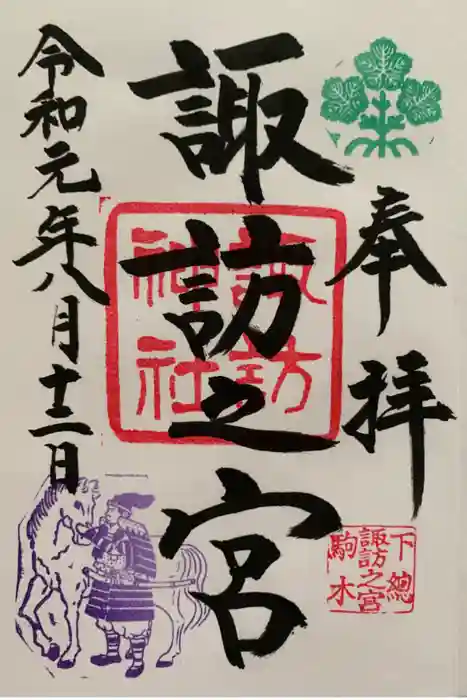 奉拝
諏訪之宮
諏訪
神社
令和元年八月十三日
下總
諏訪之宮
駒木